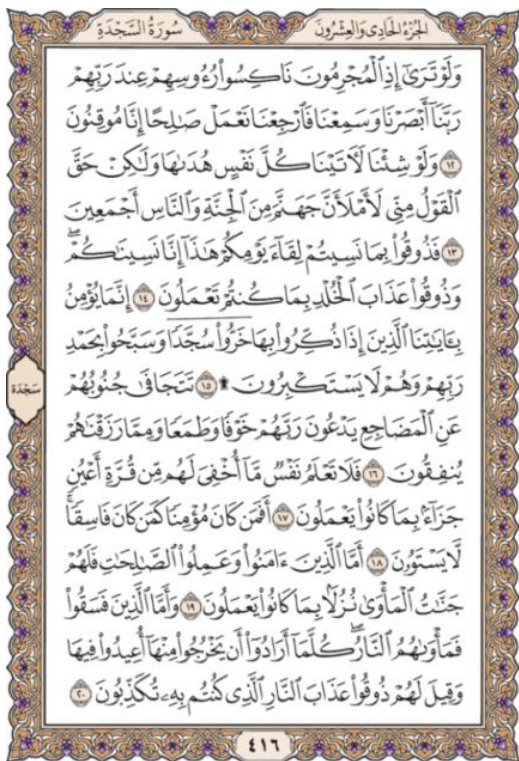 الجُزْءُ الحَادِى وَالعِشْرُونَ
سُورَةُ السَّجْدَةِ
وَلَوْ تَرَىٰٓ إِذِ ٱلْمُجْرِمُونَ نَاكِسُوا۟ رُءُوسِهِمْ عِندَ رَبِّهِمْ
رَبَّنَآ أَبْصَرْنَا وَسَمِعْنَا فَٱرْجِعْنَا نَعْمَلْ صَٰلِحًا إِنَّا مُوقِنُونَ
١٢ وَلَوْ شِئْنَا لَءَاتَيْنَا كُلَّ نَفْسٍ هُدَىٰهَا وَلَٰكِنْ حَقَّ
ٱلْقَوْلُ مِنِّى لَأَمْلَأَنَّ جَهَنَّمَ مِنَ ٱلْجِنَّةِ وَٱلنَّاسِ أَجْمَعِينَ
١٣ فَذُوقُوا۟ بِمَا نَسِيتُمْ لِقَآءَ يَوْمِكُمْ هَٰذَآ إِنَّا نَسِينَٰكُمْ ۖ
وَذُوقُوا۟ عَذَابَ ٱلْخُلْدِ بِمَا كُنتُمْ تَعْمَلُونَ ١٤ إِنَّمَا يُؤْمِنُ
بِـَٔايَٰتِنَا ٱلَّذِينَ إِذَا ذُكِّرُوا۟ بِهَا خَرُّوا۟ سُجَّدًا وَسَبَّحُوا۟ بِحَمْدِ
رَبِّهِمْ وَهُمْ لَا يَسْتَكْبِرُونَ ۩ ١٥ تَتَجَافَىٰ جُنُوبُهُمْ
سَجْدَة
عَنِ ٱلْمَضَاجِعِ يَدْعُونَ رَبَّهُمْ خَوْفًا وَطَمَعًا وَمِمَّا رَزَقْنَٰهُمْ
يُنفِقُونَ ١٦ فَلَا تَعْلَمُ نَفْسٌ مَّآ أُخْفِىَ لَهُم مِّن قُرَّةِ أَعْيُنٍ
جَزَآءًۢ بِمَا كَانُوا۟ يَعْمَلُونَ ١٧ أَفَمَن كَانَ مُؤْمِنًا كَمَن كَانَ فَاسِقًا ۚ
لَّا يَسْتَوُۥنَ ١٨ أَمَّا ٱلَّذِينَ ءَامَنُوا۟ وَعَمِلُوا۟ ٱلصَّٰلِحَٰتِ فَلَهُمْ
جَنَّٰتُ ٱلْمَأْوَىٰ نُزُلًۢا بِمَا كَانُوا۟ يَعْمَلُونَ ١٩ وَأَمَّا ٱلَّذِينَ فَسَقُوا۟
فَمَأْوَىٰهُمُ ٱلنَّارُ ۖ كُلَّمَآ أَرَادُوٓا۟ أَن يَخْرُجُوا۟ مِنْهَآ أُعِيدُوا۟ فِيهَا
وَقِيلَ لَهُمْ ذُوقُوا۟ عَذَابَ ٱلنَّارِ ٱلَّذِى كُنتُم بِهِۦ تُكَذِّبُونَ ٢٠
٤١٦